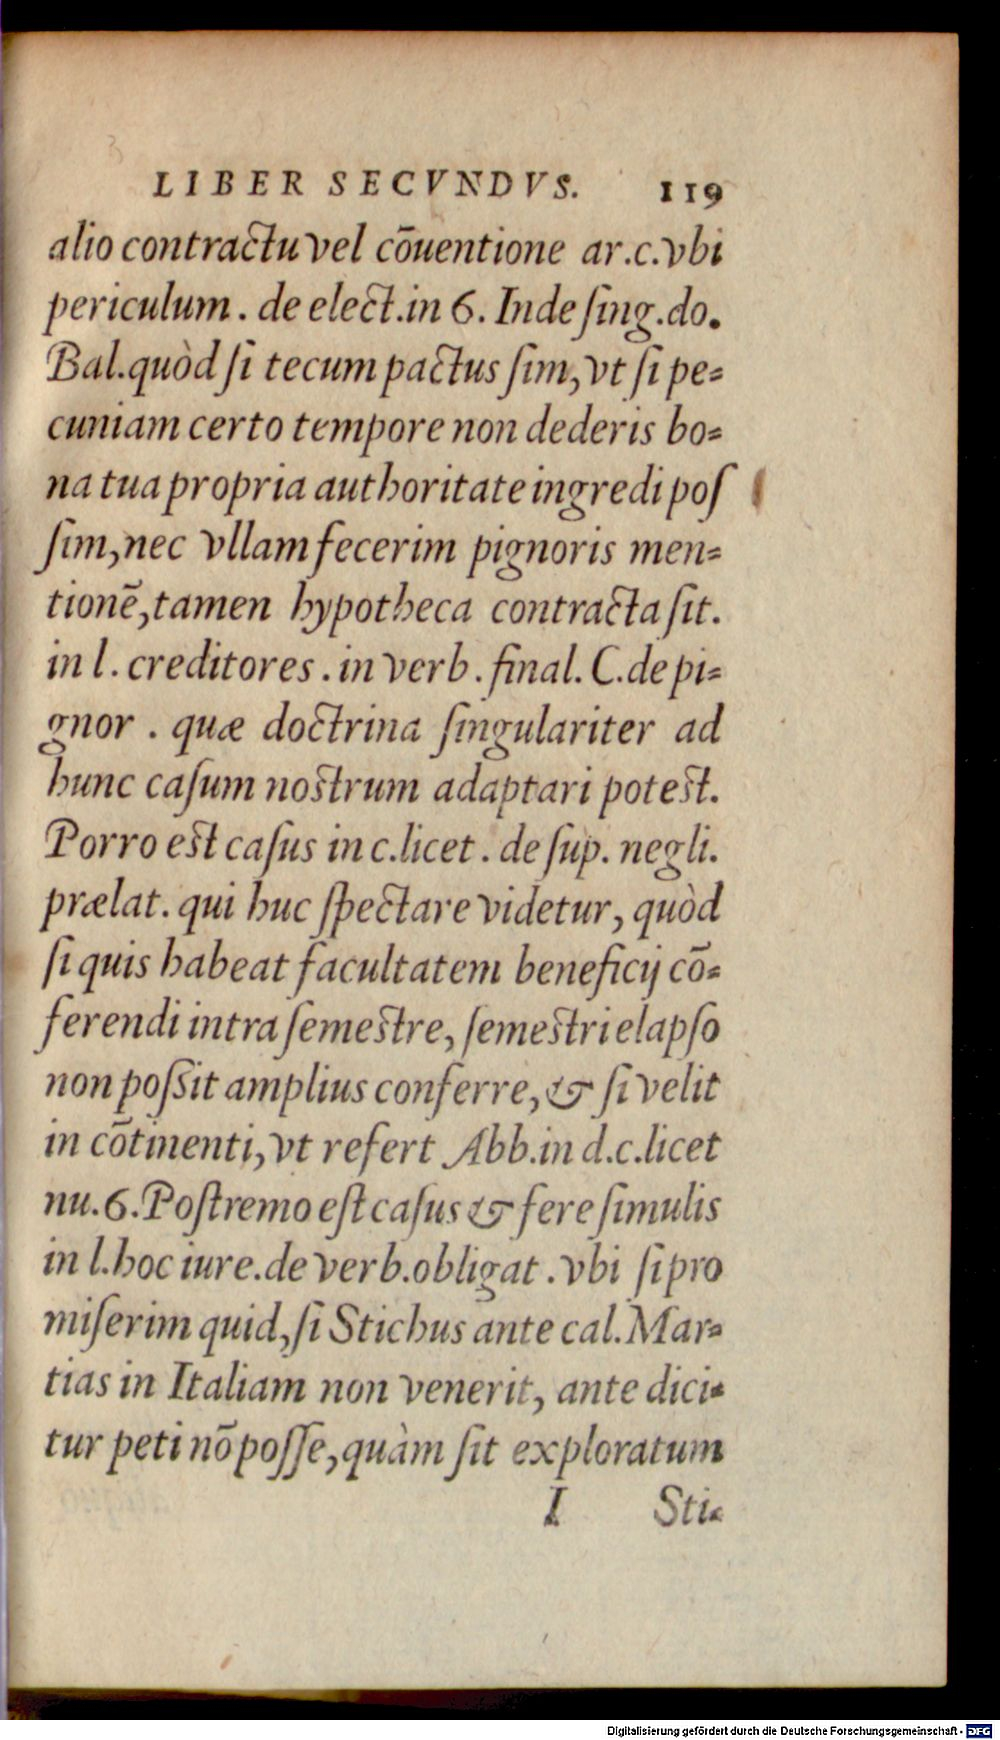 LIBER SECVNDVS. 119
alio contractu vel cōuentione ar.c.vbi
periculum. de elect.in 6. Inde ſing.do.
Bal.quòd ſi tecum pactus ſim, vt ſi pe=
cuniam certo tempore non dederis bo=
na tua propria authoritate ingredi poſ
ſim, nec vllam fecerim pignoris men=
tionē, tamen hypotheca contracta ſit.
in l. creditores. in verb. final. C. de pi=
gnor. quæ doctrina ſingulariter ad
hunc caſum nostrum adaptari potest.
Porro est caſus in c.licet. de ſup. negli.
prælat. qui huc ſpectare videtur, quòd
ſi quis habeat facultatem beneficij cō=
ferendi intra ſemestre, ſemestri elapſo
non poſsit amplius conferre, & ſi velit
in cōtinenti, vt refert Abb.in d.c.licet
nu.6. Poſtremo eſt caſus & fere ſimulis
in l.hoc iure.de verb.obligat. vbi ſi pro
miſerim quid, ſi Stichus ante cal. Mar=
tias in Italiam non venerit, ante dici=
tur peti nō poſſe, quàm ſit exploratum
I Sti=
Digitalisierung gefördert durch die Deutsche Forschungsgemeinschaft - DFG